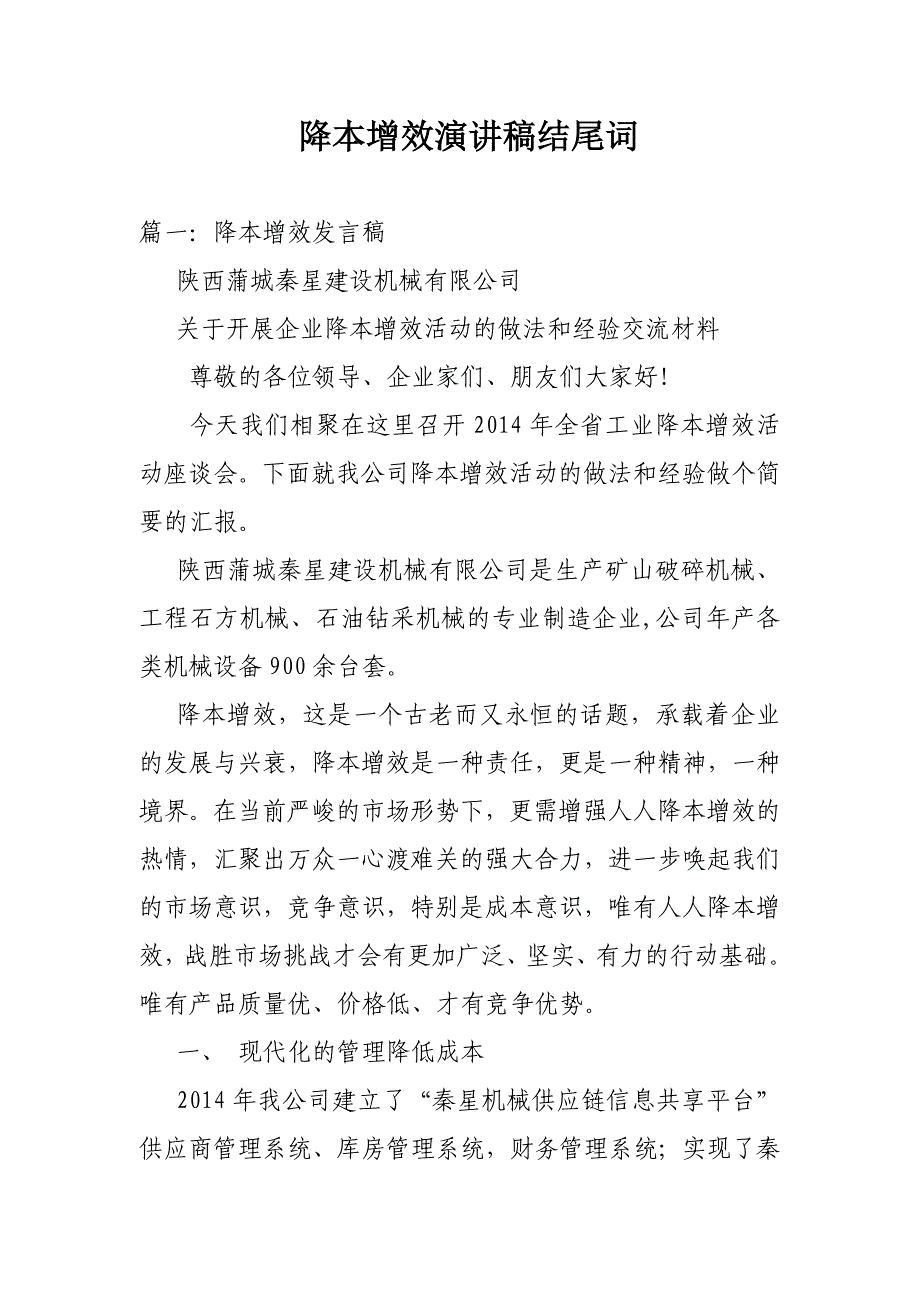 降本增效演讲稿结尾词
篇一：降本增效发言稿
陕西蒲城秦星建设机械有限公司
关于开展企业降本增效活动的做法和经验交流材料
尊敬的各位领导、企业家们、朋友们大家好!
今天我们相聚在这里召开 2014 年全省工业降本增效活
动座谈会。下面就我公司降本增效活动的做法和经验做个简
要的汇报。
陕西蒲城秦星建设机械有限公司是生产矿山破碎机械、
工程石方机械、石油钻采机械的专业制造企业,公司年产各
类机械设备 900 余台套。
降本增效，这是一个古老而又永恒的话题，承载着企业
的发展与兴衰，降本增效是一种责任，更是一种精神，一种
境界。在当前严峻的市场形势下，更需增强人人降本增效的
热情，汇聚出万众一心渡难关的强大合力，进一步唤起我们
的市场意识，竞争意识，特别是成本意识，唯有人人降本增
效，战胜市场挑战才会有更加广泛、坚实、有力的行动基础。
唯有产品质量优、价格低、才有竞争优势。
一、 现代化的管理降低成本
2014 年我公司建立了“秦星机械供应链信息共享平台”
供应商管理系统、库房管理系统，财务管理系统；实现了秦